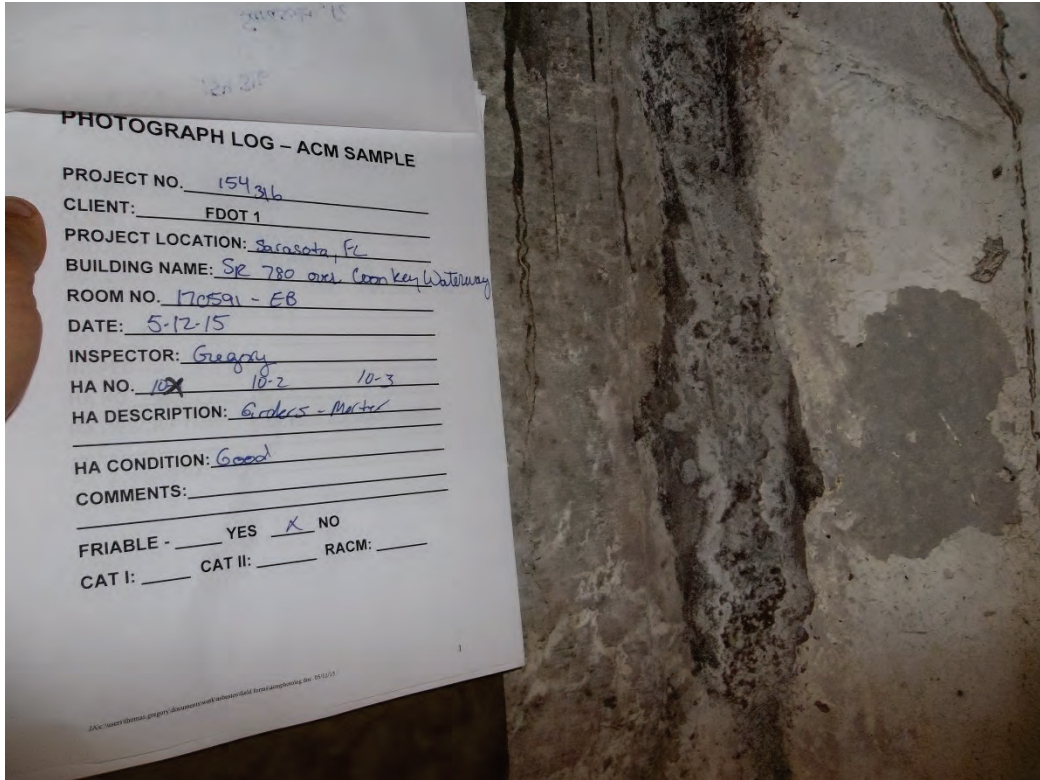 PHOTOGRAPH LOG – ACM SAMPLE
PROJECT NO. 154316
CLIENT: FDOT 1
PROJECT LOCATION: Sarasota, FL
BUILDING NAME: SR 780 over Coon Key Waterway
ROOM NO. 170591 - EB
DATE: 5-12-15
INSPECTOR: Gregory
HA NO. 10X 10-2 10-3
HA DESCRIPTION: Girders - Morter
HA CONDITION: Good
COMMENTS:
FRIABLE - YES X NO
CAT I: CAT II: RACM:
1